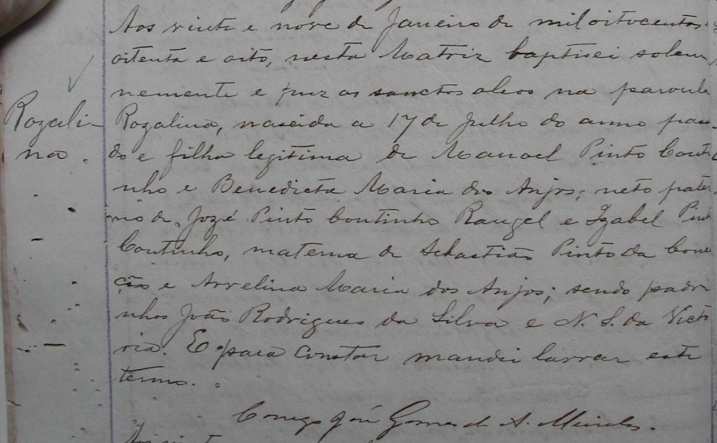 Aos vinte e nove de Janeiro de mil oitocentos
oitenta e oito, nesta Matriz baptisei solem
nemente e puz os sanctos oleos na parvula
Rozalina, nascida a 17 de Julho do anno passa
do e filha legitima de Manoel Pinto Couti
nho e Benedicta Maria dos Anjos; neto pater
no de Jozé Pinto Coutinho Rangel e Izabel Pinto
Coutinho, materna de Sebastião Pinto da Conc
ção e Avelina Maria dos Anjos; sendo padri
nhos João Rodrigues da Silva e N. S. da Victo
ria. E para constar mandei lavrar este
termo.
Conego José Gomes de A. Meirelles.
Rozali
na.